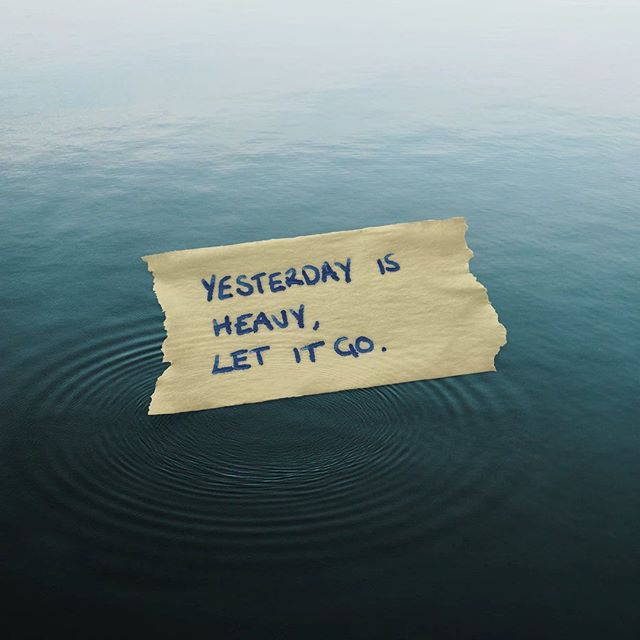 YESTERDAY IS
HEAVY,
LET IT GO.